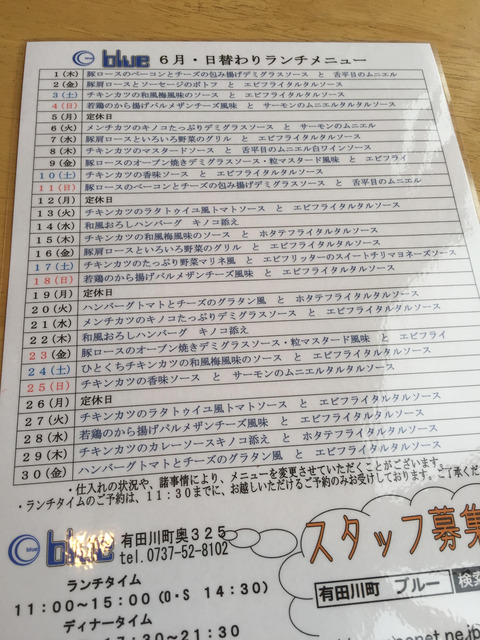 blue 6月・日替わりランチメニュー
1(木) 豚ロースのベーコンとチーズの包み揚げデミグラスソース と 舌平目のムニエル
2(金) 豚肩ロースとソーセージのポトフ と エビフライタルタルソース
3(土) チキンカツの和風梅風味のソース と エビフライタルタルソース
4(日) 若鶏のから揚げパルメザンチーズ風味 と サーモンのムニエルタルタルソース
5(月) 定休日
6(火) メンチカツのキノコたっぷりデミグラスソース と サーモンのムニエル
7(水) 豚肩ロースといろいろ野菜のグリル と エビフライタルタルソース
8(木) チキンカツのマスタードソース と 舌平目のムニエル白ワインソース
9(金) 豚ロースのオーブン焼きデミグラスソース・粒マスタード風味 と エビフライ
10(土) チキンカツの香味ソース と エビフライタルタルソース
11(日) 豚ロースのベーコンとチーズの包み揚げデミグラスソース と 舌平目のムニエル
12(月) 定休日
13(火) チキンカツのラタトゥイユ風トマトソース と エビフライタルタルソース
14(水) 和風おろしハンバーグ キノコ添え
15(木) チキンカツの和風梅風味のソース と ホタテフライタルタルソース
16(金) 豚肩ロースといろいろ野菜のグリル と エビフライタルタルソース
17(土) チキンカツのたっぷり野菜マリネ風 と エビフリッターのスイートチリマヨネーズソース
18(日) 若鶏のから揚げパルメザンチーズ風味 と エビフライタルタルソース
19(月) 定休日
20(火) ハンバーグトマトとチーズのグラタン風 と ホタテフライタルタルソース
21(水) メンチカツのキノコたっぷりデミグラスソース と エビフライタルタルソース
22(木) 和風おろしハンバーグ キノコ添え
23(金) 豚ロースのオーブン焼きデミグラスソース・粒マスタード風味 と エビフライ
24(土) ひとくちチキンカツの和風梅風味のソース と エビフライタルタルソース
25(日) チキンカツの香味ソース と サーモンのムニエルタルタルソース
26(月) 定休日
27(火) チキンカツのラタトゥイユ風トマトソース と エビフライタルタルソース
28(水) 若鶏のから揚げパルメザンチーズ風味 と エビフライタルタルソース
29(木) チキンカツのカレーソースキノコ添え と ホタテフライタルタルソース
30(金) ハンバーグトマトとチーズのグラタン風 と エビフライタルタルソース
・仕入れの状況や、諸事情により、メニューを変更させていただくことがございます。
・ランチタイムのご予約は、11:30までに、お越しいただけるご予約のみお受けしております。ご了承くだ
blue blue 有田川町奥325
tel.0737-52-8102
スタッフ募集
ランチタイム
有田川町 ブルー 検索
11:00~15:00(O・S 14:30)
ディナータイム
17:30~21:30